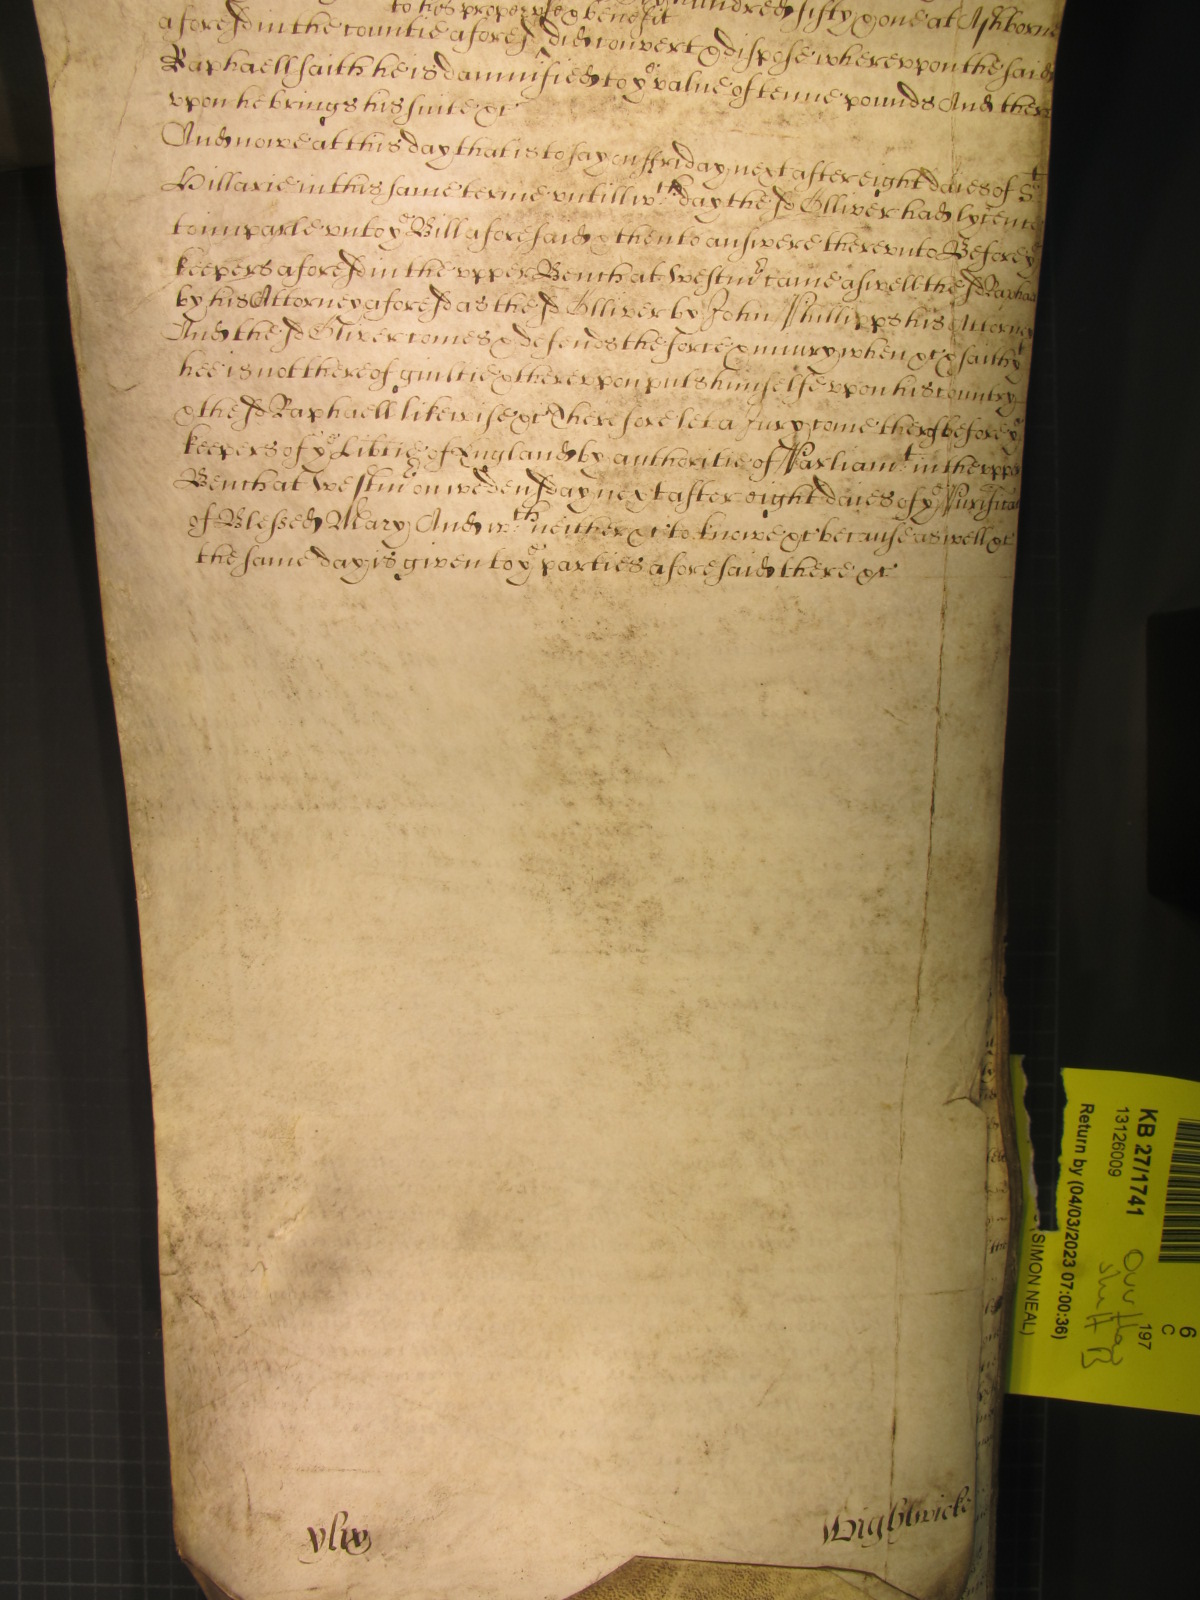 hundred fifty & one at Ashborne
to his proper use & benefit
aforesd in the countie aforesd did convert & dispose wherevppon the said
Raphaell saith he is damnified to ye value of tenne pounds And there
vpon he brings his suite &c
And nowe at this day that is to say on ffriday next after eight daies of St
Hillarie in this same terme vntill wch day the sd Olliver had lycence
to imparle vnto ye Bill aforesaid & then to answere therevnto Before ye
keepers aforesd in the vpper Bench at Westmr came aswell the sd Raphaell
by his Attorney aforesd as the sd Olliver by John Phillipps his Attorney
And the sd Oliver comes & defends the force & iniury when &c & saith yt
hee is not thereof guiltie & therevpon puts himselfe vpon his country
& the sd Raphaell likewise &c Therefore let a Jury come thereof before ye
keepers of ye Libtie of England by authoritie of Parliamt in the vpper
Bench at Westmr on wedensday next after eight daies of ye Purificac
of Blessed Mary And wch neither &c to knowe &c because aswell &c
the same day is given to ye parties aforesaid there &c
Wightwicke
KB 27/1741
13126009
Return by (04/03/2023 07:00:36)
(SIMON NEAL)
6
C
197